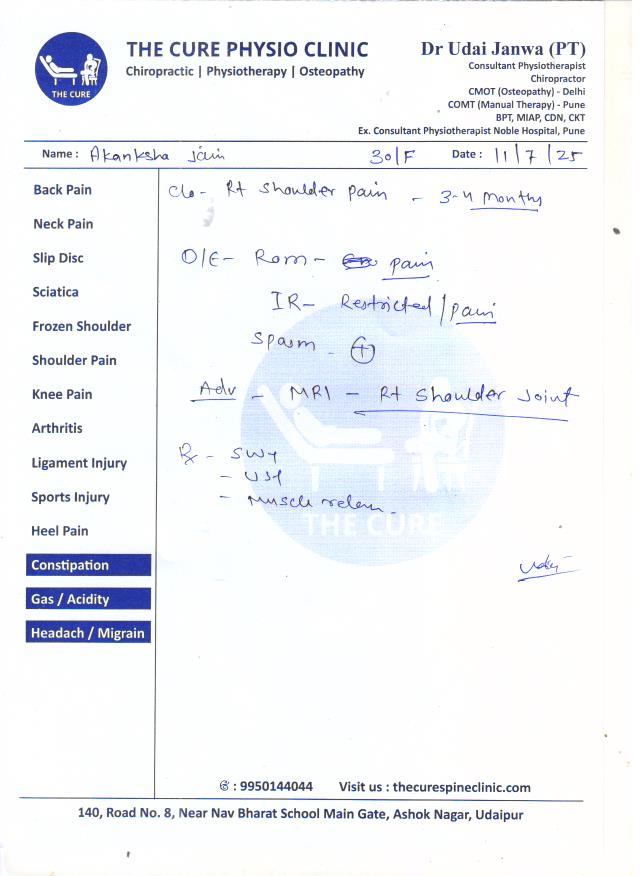 THE CURE PHYSIO CLINIC
Chiropractic | Physiotherapy | Osteopathy
THE CURE
Dr Udai Janwa (PT)
Consultant Physiotherapist
Chiropractor
CMOT (Osteopathy) - Delhi
COMT (Manual Therapy) - Pune
BPT, MIAP, CDN, CKT
Ex. Consultant Physiotherapist Noble Hospital, Pune
Name : Akanksha Jain 30/F Date : 11/7/25
Back Pain
Neck Pain
Slip Disc
Sciatica
Frozen Shoulder
Shoulder Pain
Knee Pain
Arthritis
Ligament Injury
Sports Injury
Heel Pain
Constipation
Gas / Acidity
Headach / Migrain
C/o - Rt Shoulder pain - 3-4 Months
O/E - Rom - pain
IR - Restricted / pain
Spasm - +
Adv - MRI - Rt Shoulder Joint
Rx - SWT
- UST
- Muscle relem
THE CURE
Udai
: 9950144044 Visit us : thecurespineclinic.com
140, Road No. 8, Near Nav Bharat School Main Gate, Ashok Nagar, Udaipur